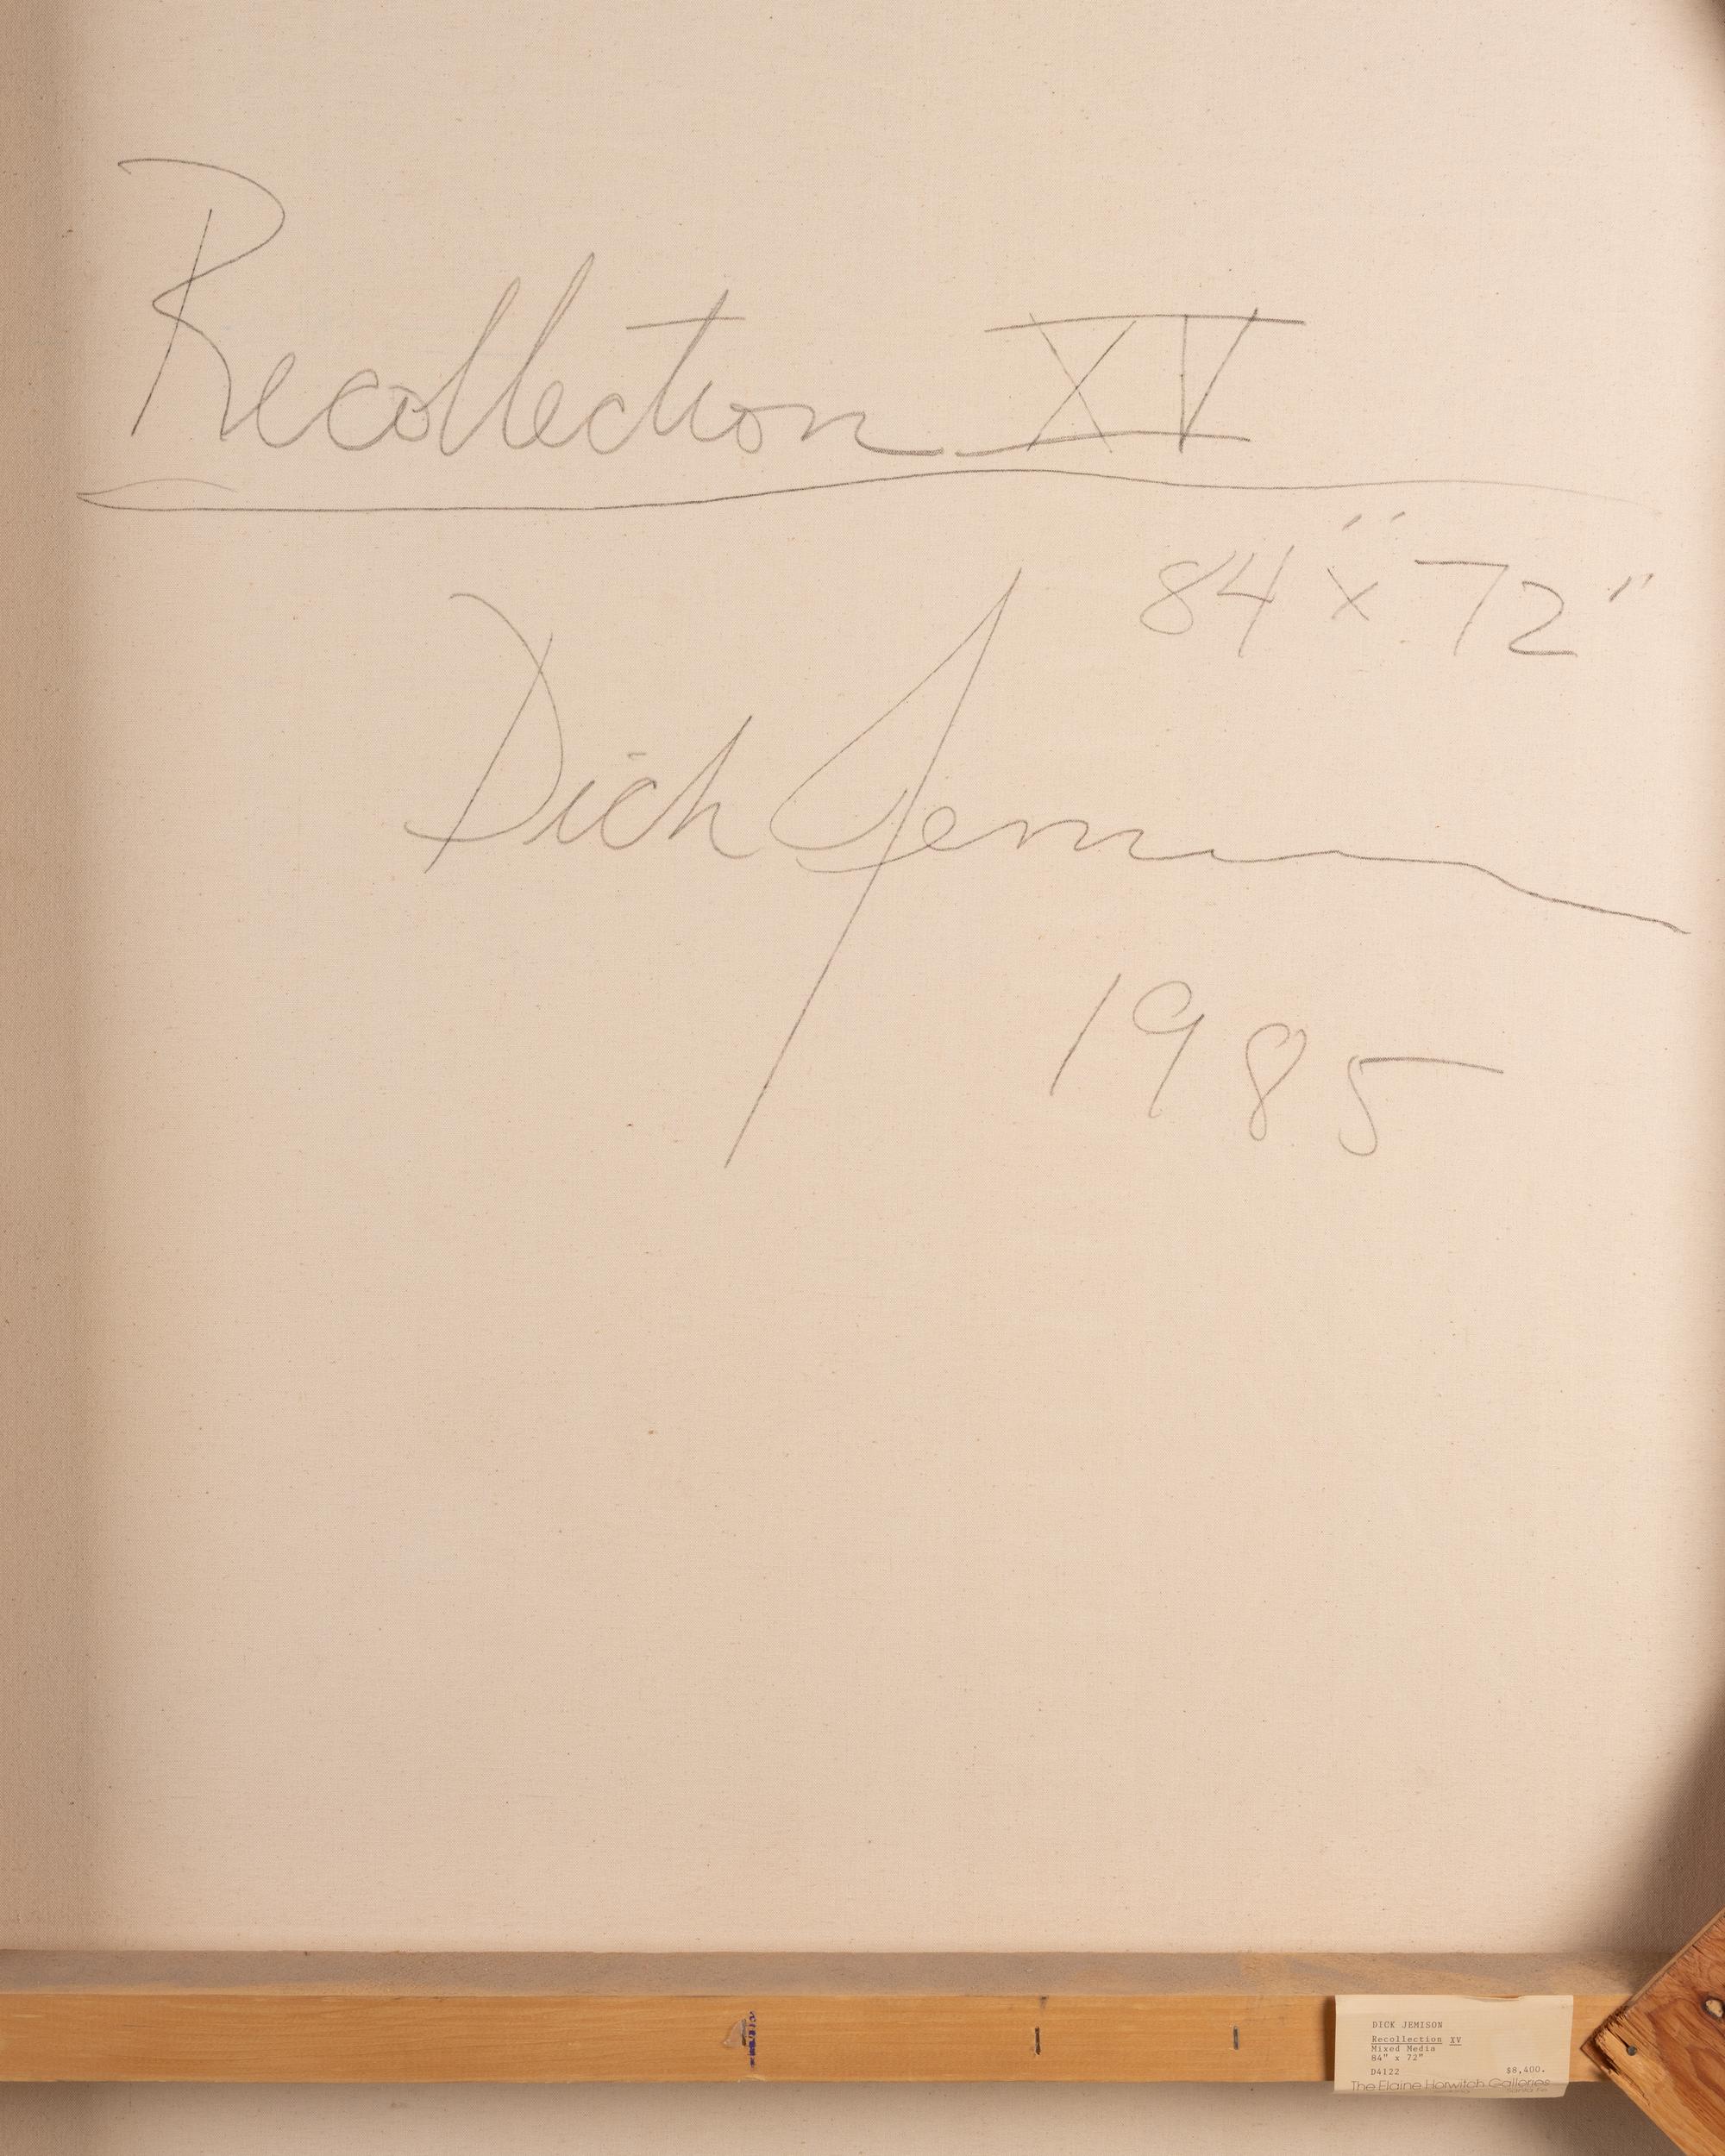 Recollection XV
84" x 72"
Dick Jemison
1985
DICK JEMISON
Recollection XV
Mixed Media
84" x 72"
D4122 $8,400.
The Elaine Horwitch Galleries